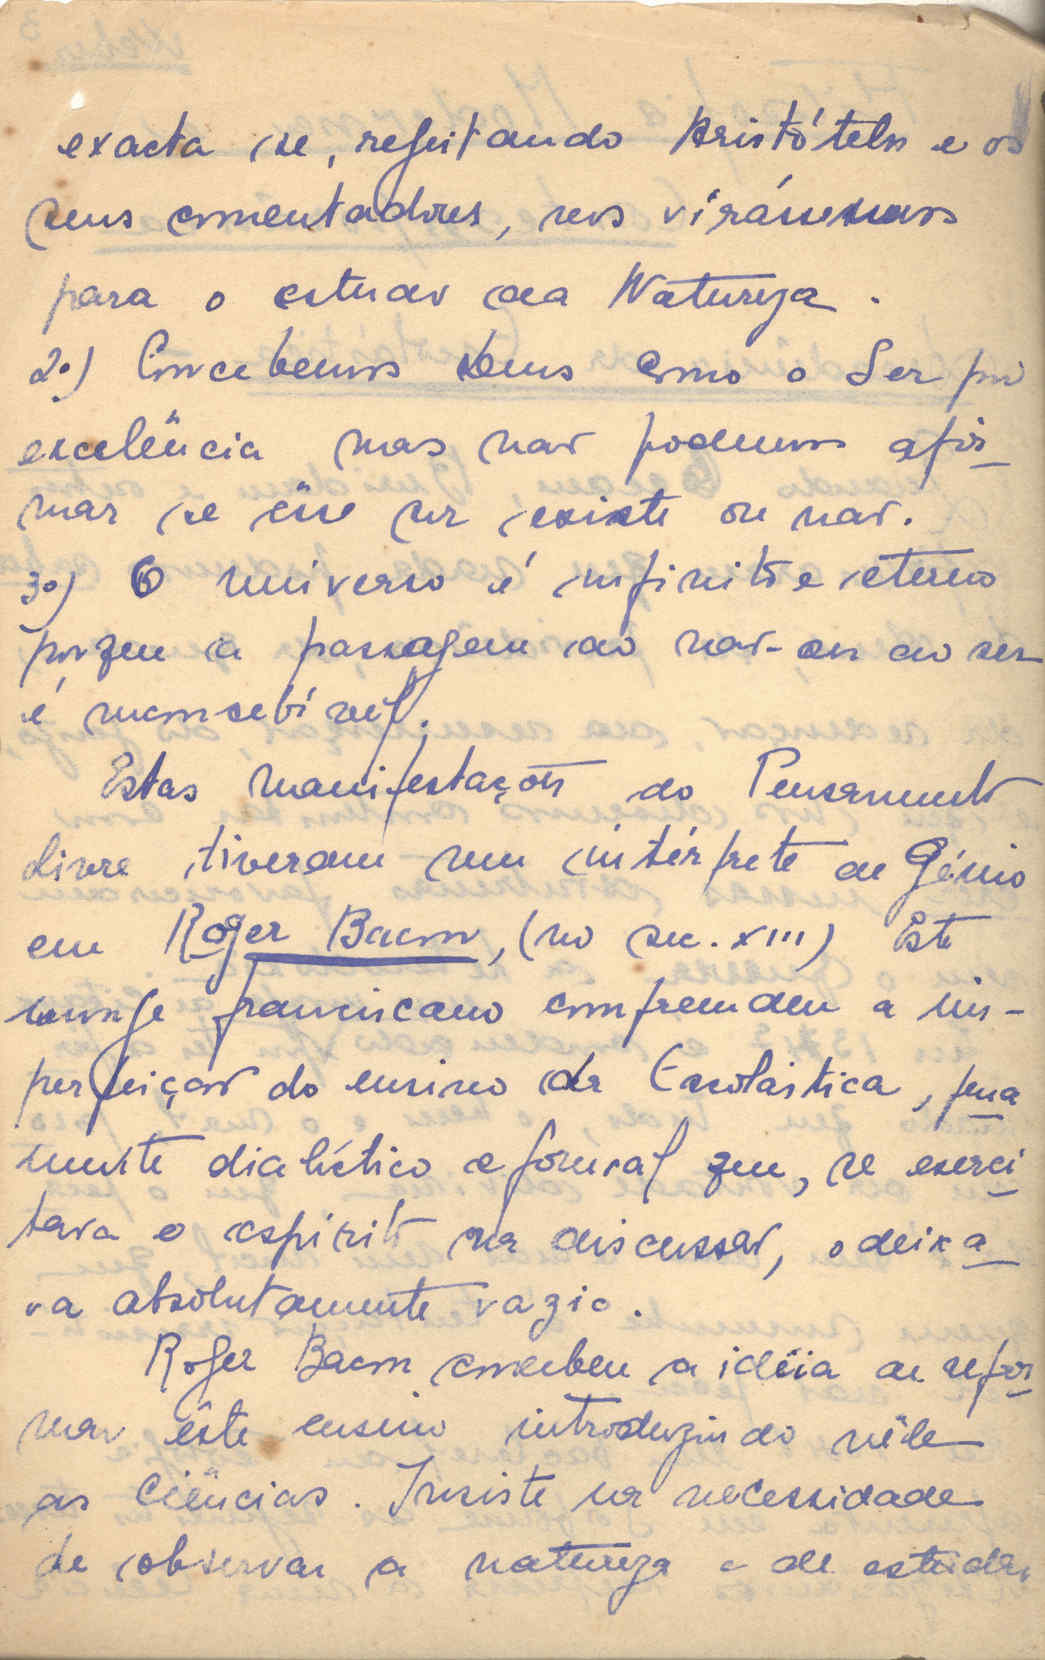 exacta se, rejeitando Aristóteles e os
seus comentadores, nos virássemos
para o estudo da Natureza.
2º) Concebemos Deus como o Ser por
excelência mas não podemos afir-
mar se êsse ser existe ou não.
3º) O universo é infinito e eterno
porque a passagem do não-ser ao ser
é inconcebível.
Estas manifestações do Pensamento
Livre tiveram um intérprete de Génio
em Roger Bacon, (no sec. XIII) Este
monge franciscano compreendeu a im-
perfeição do ensino da Escolástica, pura
mente dialéctico e formal que, se exerci
tava o espírito na discussão, o deixa
va absolutamente vazio.
Roger Bacon concebeu a idéia de refor
mar êste ensino introduzindo nêle
as Ciências. Insiste na necessidade
de observar a natureza e de estudar